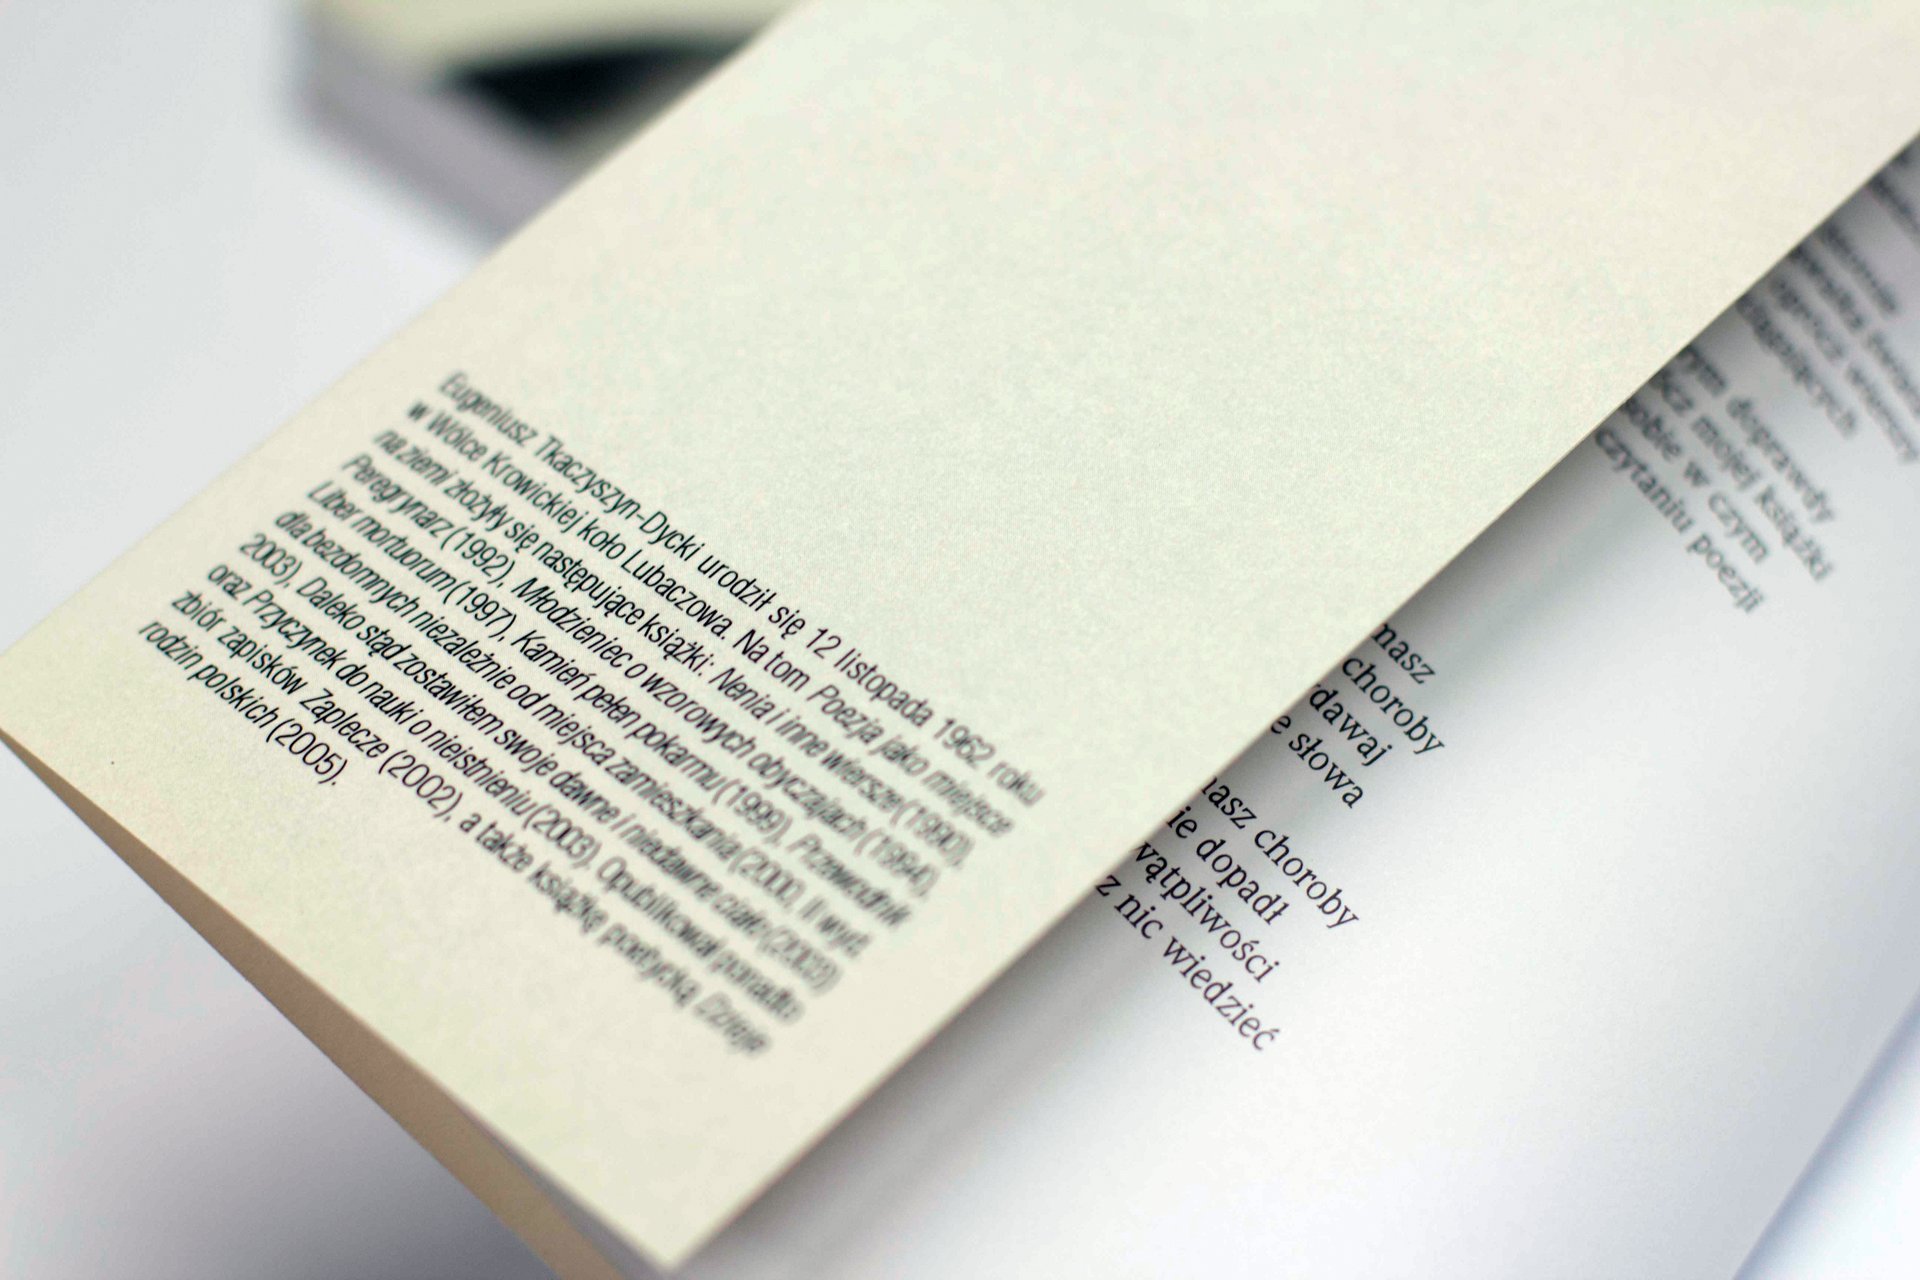 Eugeniusz Tkaczyszyn-Dycki urodził się 12 listopada 1962 roku
w Wólce Krowickiej koło Lubaczowa. Na tom Poezja jako miejsce
na ziemi złożyły się następujące książki: Nenia i inne wiersze (1990),
Peregrynarz (1992), Młodzieniec o wzorowych obyczajach (1994),
Liber mortuorum (1997), Kamień pełen pokarmu (1999), Przewodnik
dla bezdomnych niezależnie od miejsca zamieszkania (2000, II wyd.
2003), Daleko stąd zostawiłem swoje dawne i niedawne ciało (2003)
oraz Przyczynek do nauki o nieistnieniu (2003). Opublikował ponadto
zbiór zapisków Zaplecze (2002), a także książkę poetycką Dzieje
rodzin polskich (2005).
doprawdy
mojej książki
w czym
czytaniu poezji
masz
choroby
dawaj
słowa
masz choroby
dopadł
wątpliwości
z nic wiedzieć